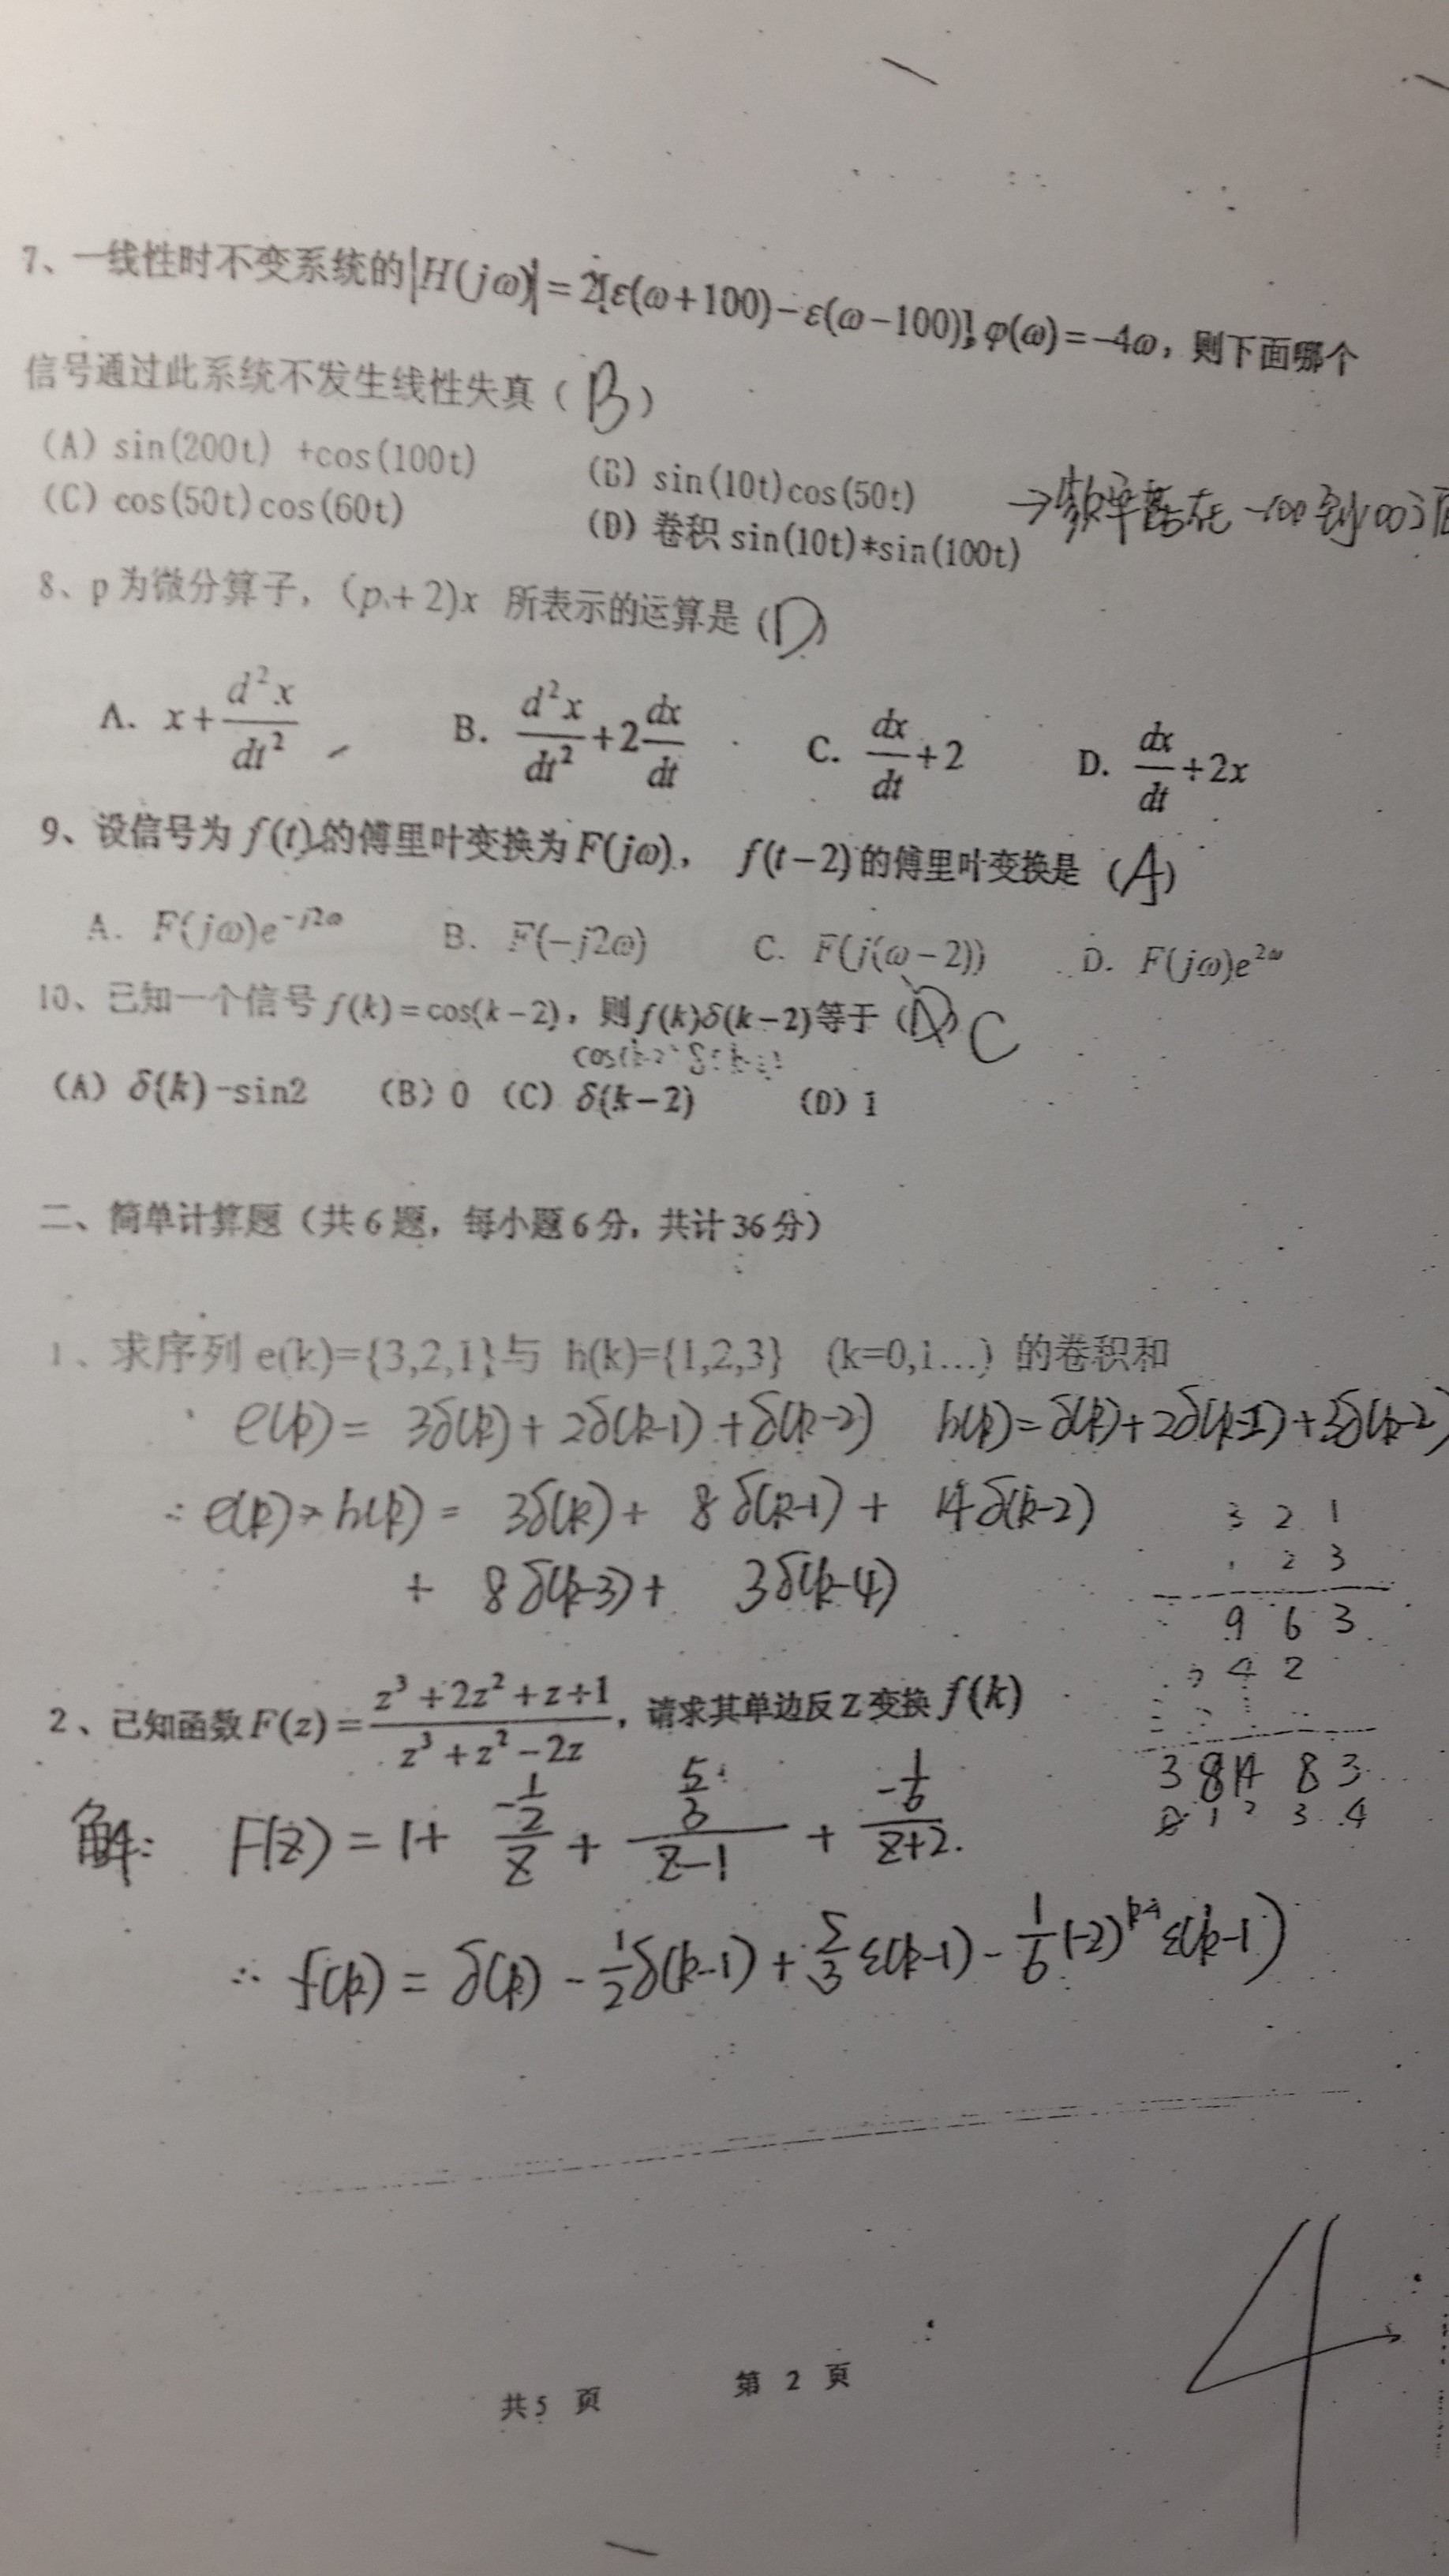 7、一线性时不变系统的|H(jω)|=2[ε(ω+100)-ε(ω-100)], φ(ω)=-4ω，则下面哪个
信号通过此系统不发生线性失真（ B ）
(A) sin(200t) +cos(100t) (B) sin(10t)cos(50t)
(C) cos(50t)cos(60t) (D) 卷积 sin(10t)*sin(100t)
→频率落在 -100到100
8、p 为微分算子，(p+2)x 所表示的运算是（D）
A. x+\frac{d^2x}{dt^2} B. \frac{d^2x}{dt^2}+2\frac{dx}{dt} C. \frac{dx}{dt}+2 D. \frac{dx}{dt}+2x
9、设信号为 f(t) 的傅里叶变换为 F(jω)， f(t-2) 的傅里叶变换是 (A)
A. F(jω)e^{-j2ω} B. F(-j2ω) C. F(j(ω-2)) D. F(jω)e^{2ω}
10、已知一个信号 f(k)=cos(k-2)，则 f(k)δ(k-2) 等于 ( ) C
(A) δ(k)-sin2 (B) 0 (C) δ(k-2) (D) 1
二、简单计算题（共 6 题，每小题 6 分，共计 36 分）
1、求序列 e(k)={3,2,1}与 h(k)={1,2,3} (k=0,1...) 的卷积和
e(k)= 3δ(k)+2δ(k-1)+δ(k-2) h(k)=δ(k)+2δ(k-1)+3δ(k-2)
∴ e(k)*h(k) = 3δ(k)+ 8δ(k-1)+ 14δ(k-2)
+ 8δ(k-3)+ 3δ(k-4)
3 2 1
1 2 3
9 6 3
4 2
3 8 14 8 3
0 1 2 3 4
2、已知函数 F(z)=\frac{z^3+2z^2+z+1}{z^3+z^2-2z}，请求其单边反 Z 变换 f(k)
解: F(z)=1+\frac{-\frac{1}{2}}{z}+\frac{\frac{5}{3}}{z-1}+\frac{-\frac{1}{6}}{z+2}
∴ f(k)=δ(k)-\frac{1}{2}δ(k-1)+\frac{5}{3}ε(k-1)-\frac{1}{6}(-2)^{k-1}ε(k-1)
共 5 页 第 2 页
4